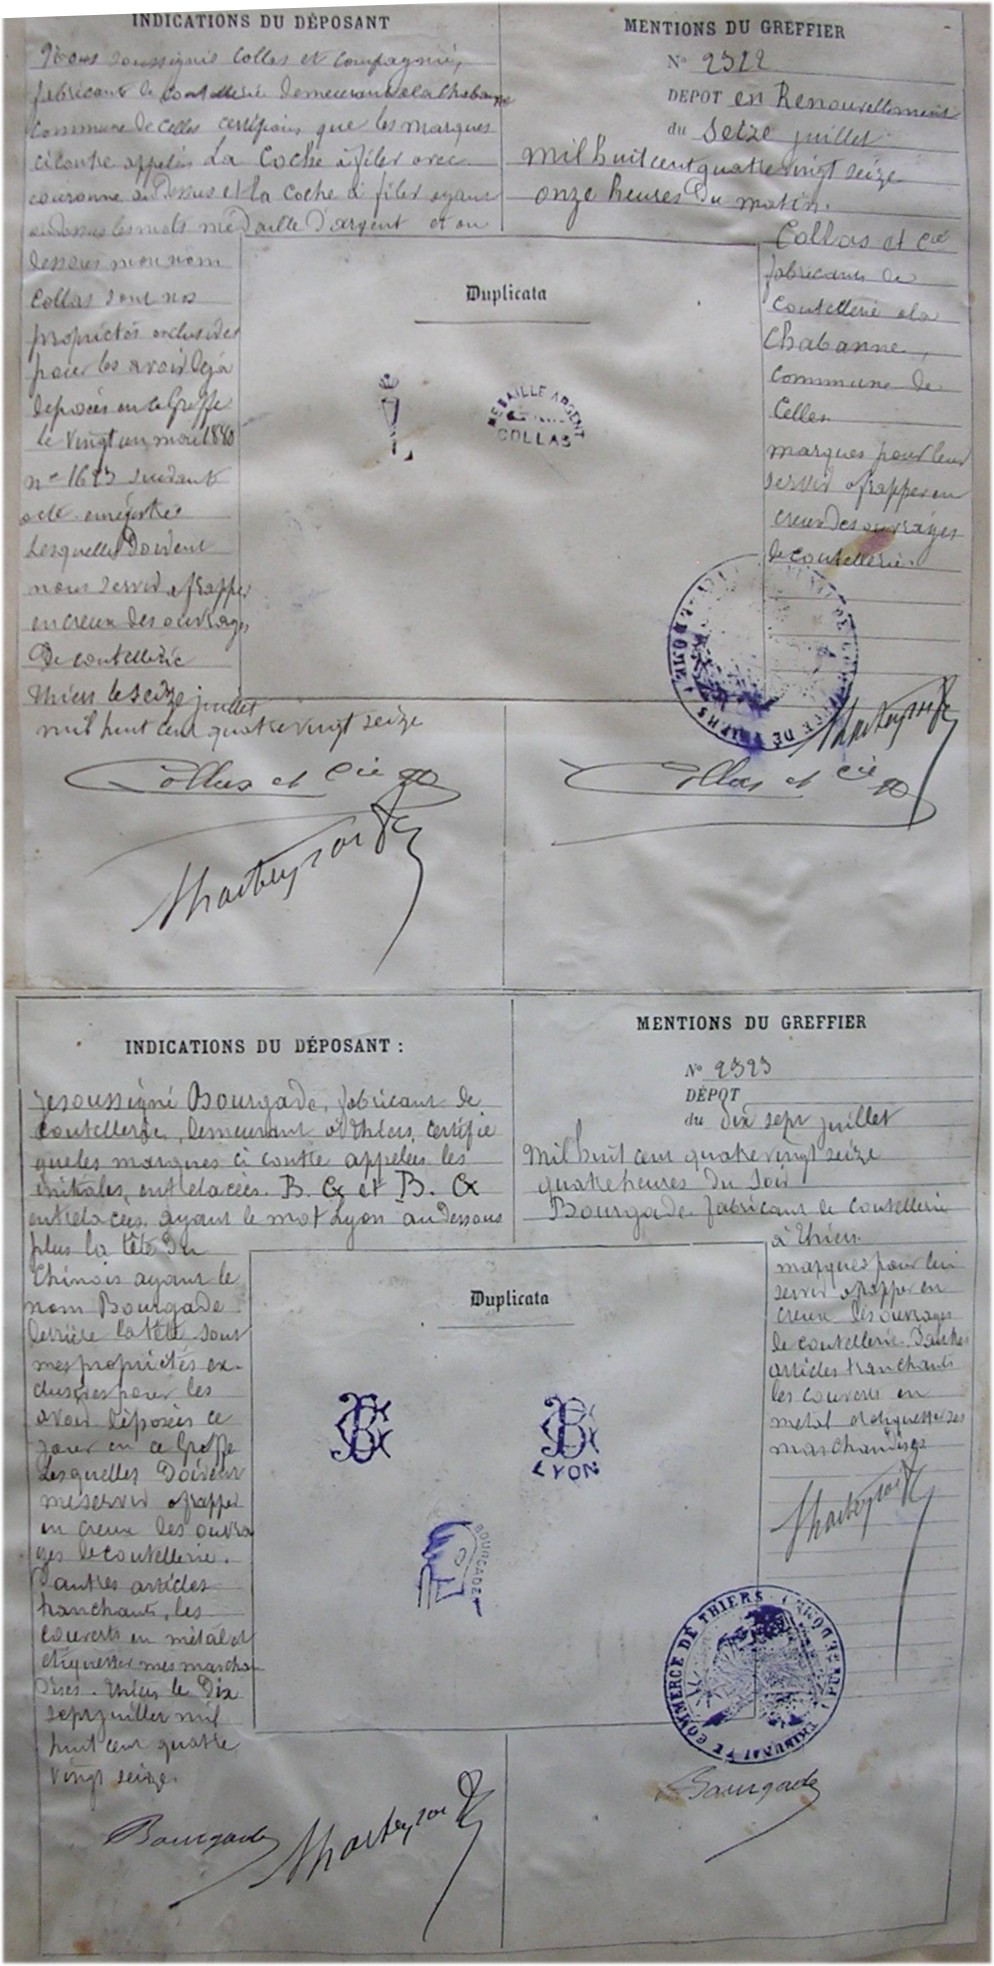 INDICATIONS DU DÉPOSANT
Nous soussignés Collas et Compagnie,
fabricant de Coutellerie demeurant a la Chabanne
Commune de Celles certifions que les marques
ci contre appelées La Coche à filer avec
couronne au Dessus et la Coche à filer ayant
au dessus les mots médaille d'argent et au
dessous mon nom
Collas sont nos
propriétés exclusives
pour les avoir déja
déposées en ce Greffe
le vingt un mai 1880
n° 1693 suivant
acte enregistré
Lesquelles Doivent
nous servir a frapper
en creux des ouvrages
De coutellerie
Thiers le seize juillet
mil huit cent quatre vingt seize
Collas et Cie
MENTIONS DU GREFFIER
N° 2322
DÉPOT en Renouvellement
du Seize juillet
mil huit cent quatre vingt seize
onze heures du matin.
Collas et Cie
fabricants de
Coutellerie a la
Chabanne,
Commune de
Celles
marques pour leur
servir a frapper en
creux des ouvrages
de coutellerie.
Duplicata
MEDAILLE ARGENT
COLLAS
Collas et Cie
INDICATIONS DU DÉPOSANT :
Je soussigné Bourgade, fabricant de
Coutellerie, demeurant à Thiers, certifie
que les marques ci contre appelées les
initiales entrelacées. B. G et B. G
entrelacées ayant le mot Lyon au dessous
plus la tête du
Chinois ayant le
nom Bourgade
derrière la tête sont
mes propriétés ex-
clusives pour les
avoir déposées ce
jour en ce Greffe
Lesquelles Doivent
me servir a frapper
en creux des ouvra
ges de coutellerie.
D'autres articles
tranchants, les
couverts en métal et
etiquetter mes marchan
dises. Thiers le Dix
sept juillet mil
huit cent quatre
vingt seize.
Bourgade
MENTIONS DU GREFFIER
N° 2323
DÉPÔT
du Dix sept juillet
mil huit cent quatre vingt seize
quatre heures du soir
Bourgade fabricant de coutellerie
à Thiers
marques pour lui
servir a frapper en
creux des ouvrages
de coutellerie. D'autres
articles tranchants
les couverts en
metal et etiquetter ses
marchandises
Duplicata
LYON
BOURGADE
TRIBUNAL DE COMMERCE DE THIERS (PUY-DE-DOME)
Bourgade